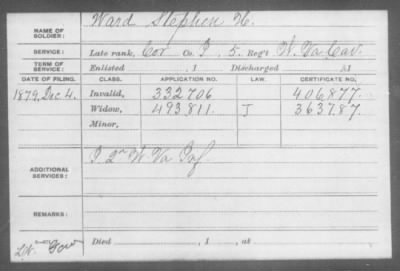 NAME OF SOLDIER: Ward Stephen H.
SERVICE: Late rank, Cor Co. I, 5. Reg't W. Va Cav.
TERM OF SERVICE: Enlisted , 1 Discharged , 1
DATE OF FILING. CLASS. APPLICATION NO. LAW. CERTIFICATE NO.
1879, Dec 4. Invalid, 332706 406877.
Widow, 493811. J 363787.
Minor,
ADDITIONAL SERVICES: I 2" W Va Inf
REMARKS:
Died , 1 , at